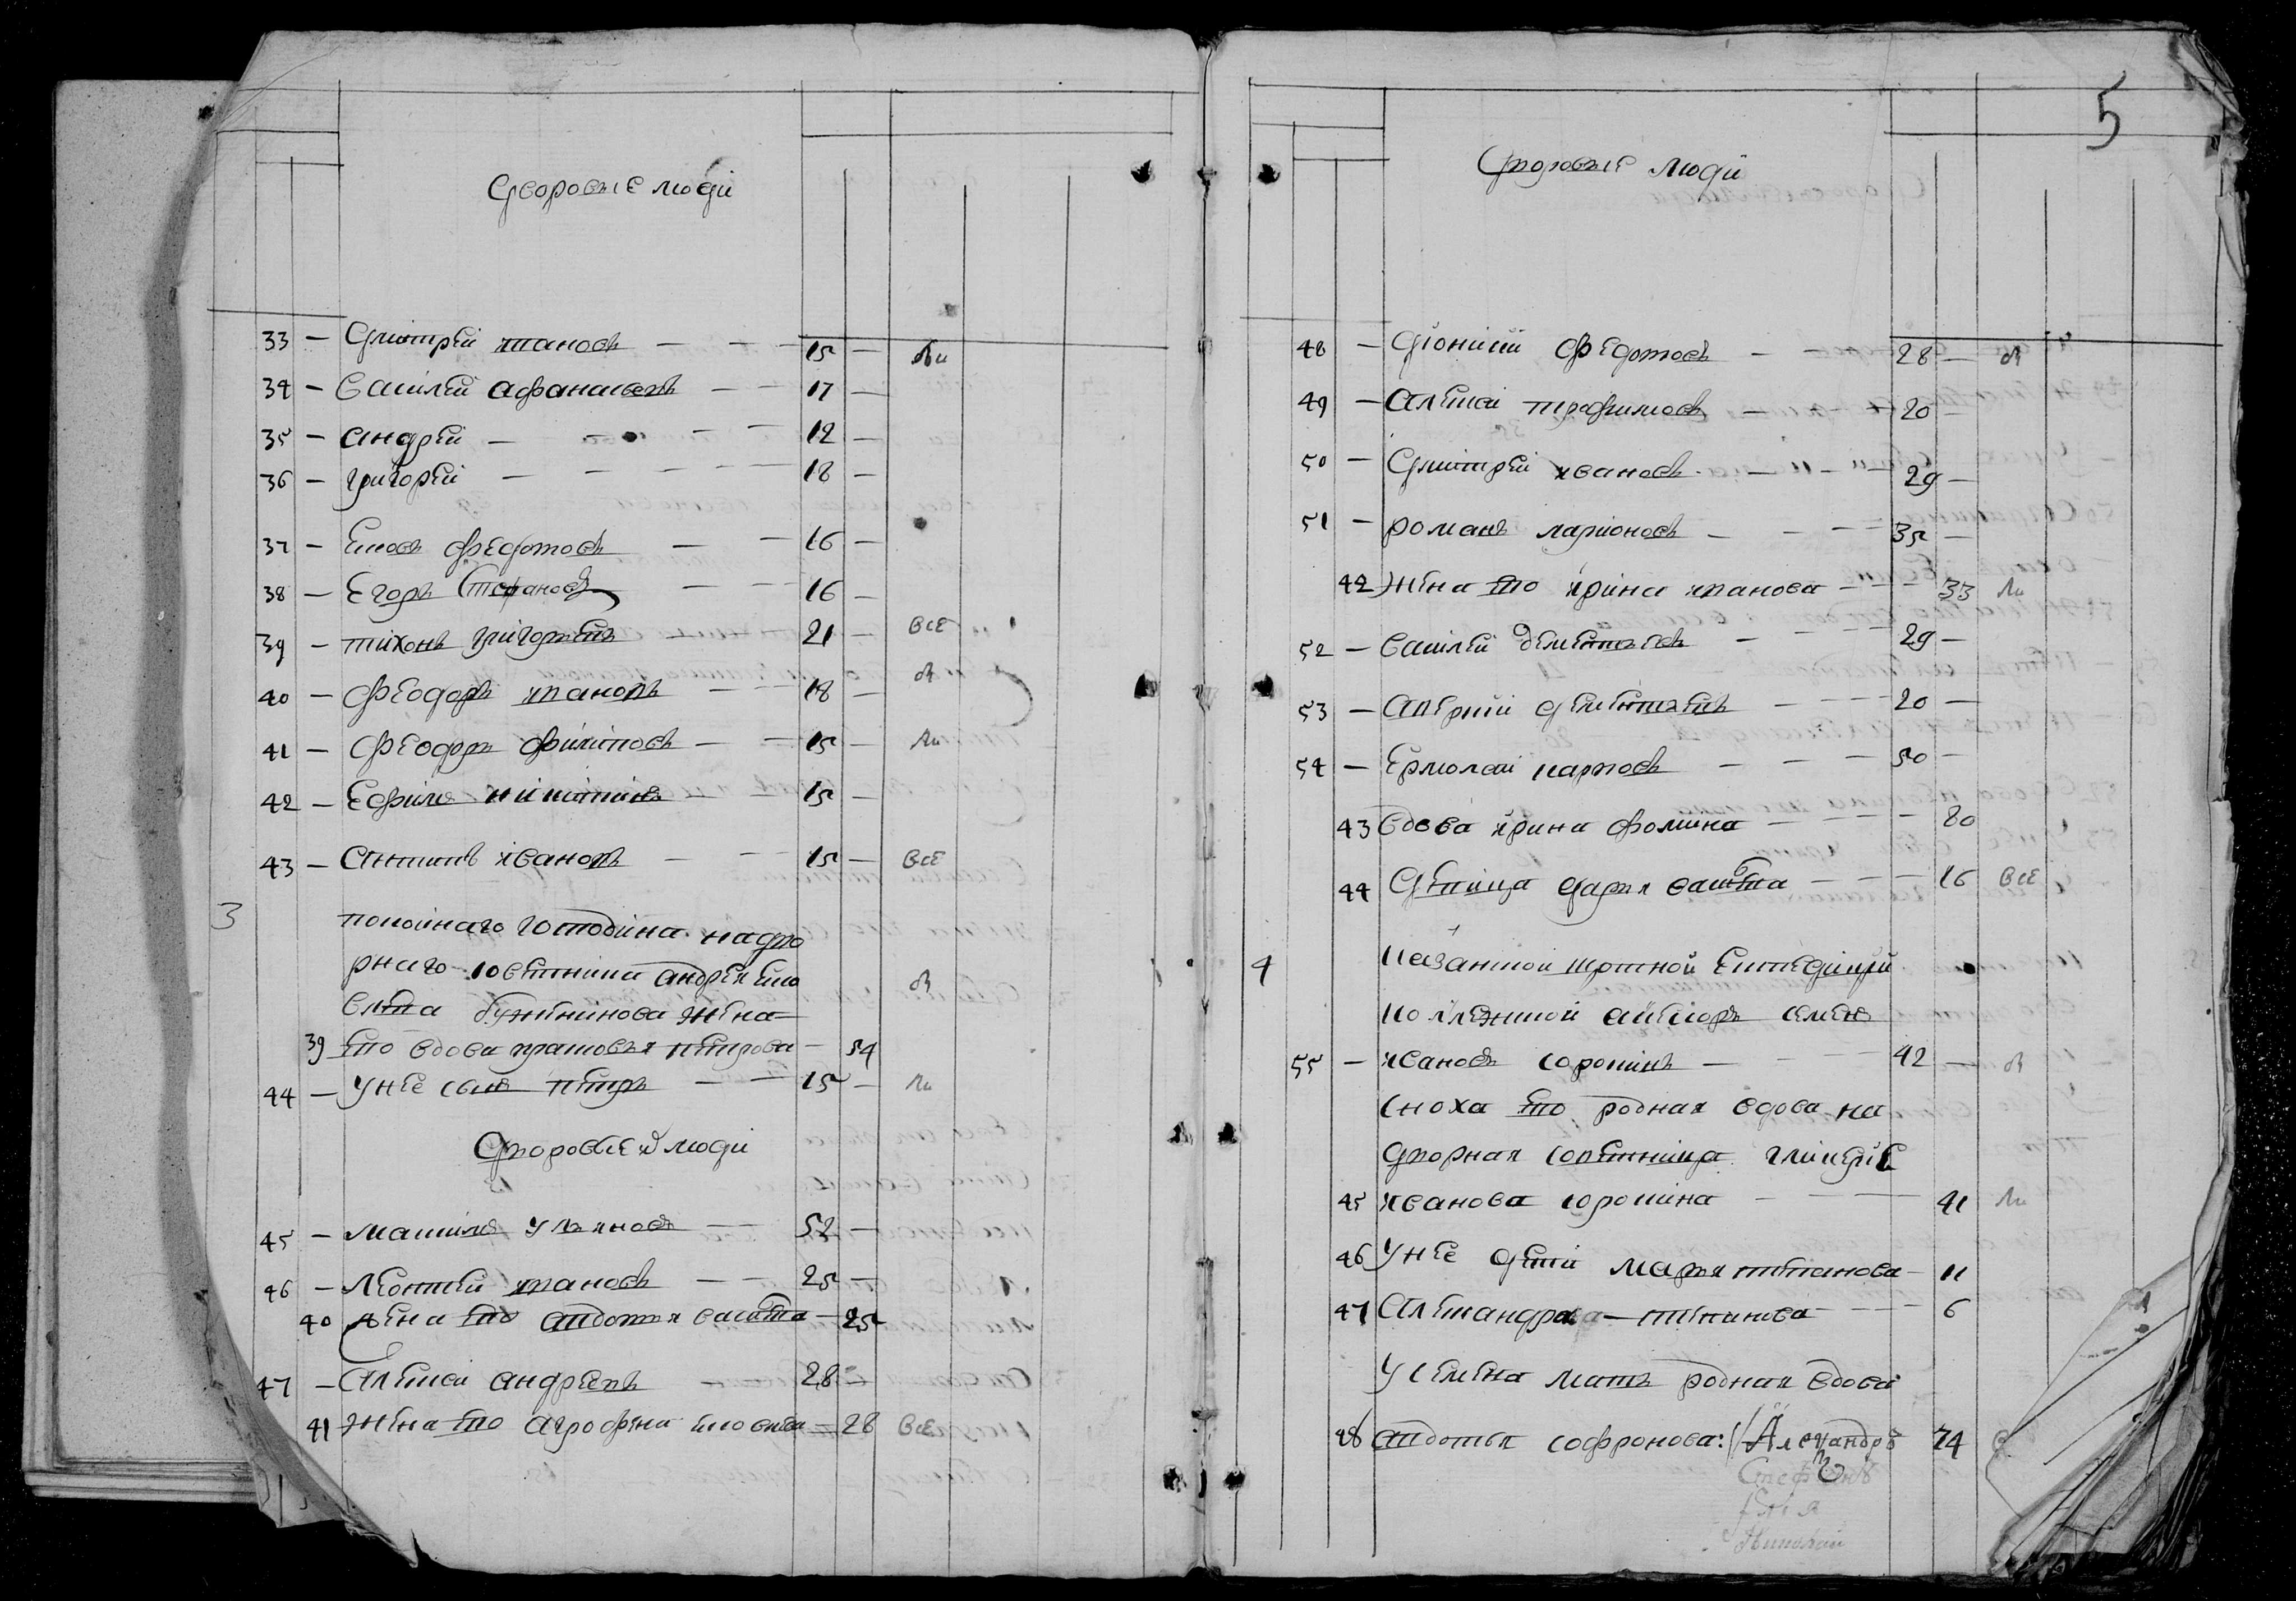 Дворовые люди
33 — Дмитрей Іванов — — 15 —
34 — Василей Афанасьевъ — — 17 —
35 — Андрей — — — 12 —
36 — Григорей — — — 18 —
37 — Яковъ Федотовъ — — 16 —
38 — Егоръ Степановъ — — 16 —
39 — Тихонъ Григорьевъ 21 — все
40 — Феодоръ Івановъ — — 18 —
41 — Феодоръ Филіповъ — — 15 —
42 — Ефимъ Никитинъ — 15 —
43 — Антипъ Івановъ — — 15 — все
3
покойнаго господина надво
рнаго советника Андрея Яко
влева жена
39 ево вдова Прасковья Петрова — 54
44 — У нее сынъ Петръ — — 15 —
Дворовые люди
45 — Максимъ Ульяновъ — — 52 —
46 — Леонтей Івановъ — — 25 —
40 жена ево Авдотья Васильева — 25
47 — Алексей Андреевъ — 28 —
41 жена ево Агрофена Яковлева — 28 все
5
Дворовые люди
48 — Дионисий Федотовъ — — 28 —
49 — Алексей Трофимовъ — — 20 —
50 — Дмитрей Ивановъ — — 29 —
51 — Романъ Ларионовъ — — — 35 —
42 Жена ево Ирина Иванова — — — 33
52 — Василей Дементьевъ — — — 29 —
53 — Аверкий Дементьевъ — — — 20 —
54 — Ермолай Карповъ — — — 50 —
43 вдова Ирина Фомина — — — — 80
44 Девица Дарья Васильева — — — 16 все
4
Казанской щетной Експедиции
колежской асесоръ Семенъ
55 — Ивановъ Сорокинъ — — 42 —
сноха ево родная вдова на
дворная советница Гликерия
45 Иванова Сорокина — — — 41
46 У нее дети Марья Степанова — 11
47 Александра — Степанова — — — 6
У Семена мать родная вдова
48 Авдотья Софронова: Александръ 74
Степанъ
Илья
Николай